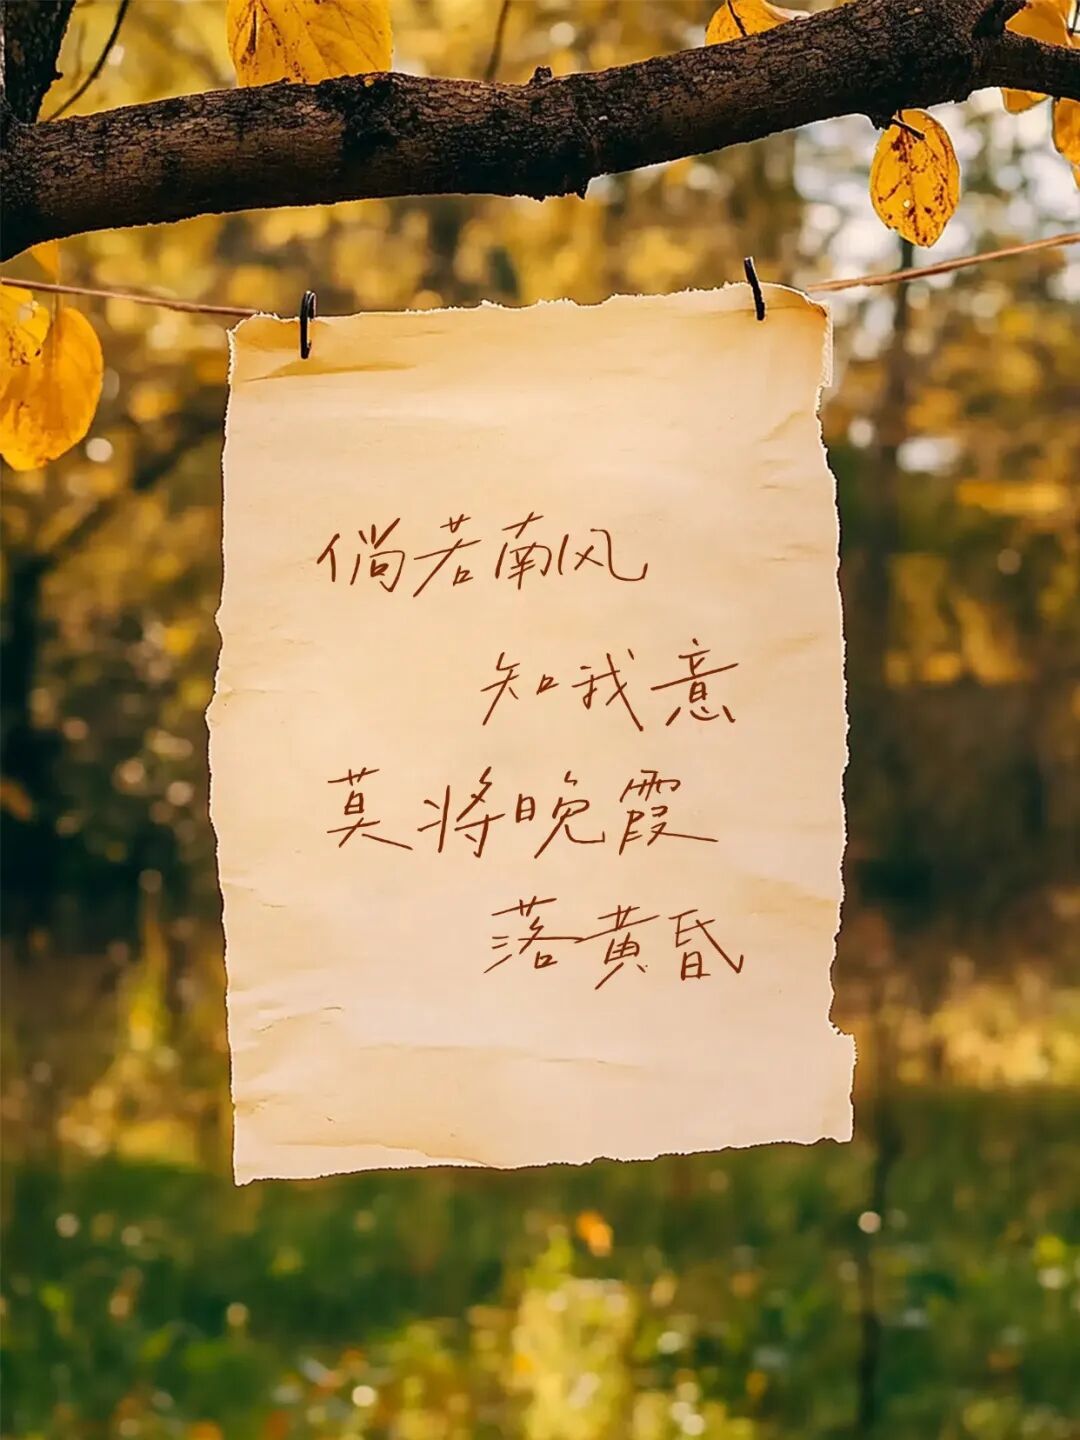 倘若南风
知我意
莫将晚霞
落黄昏